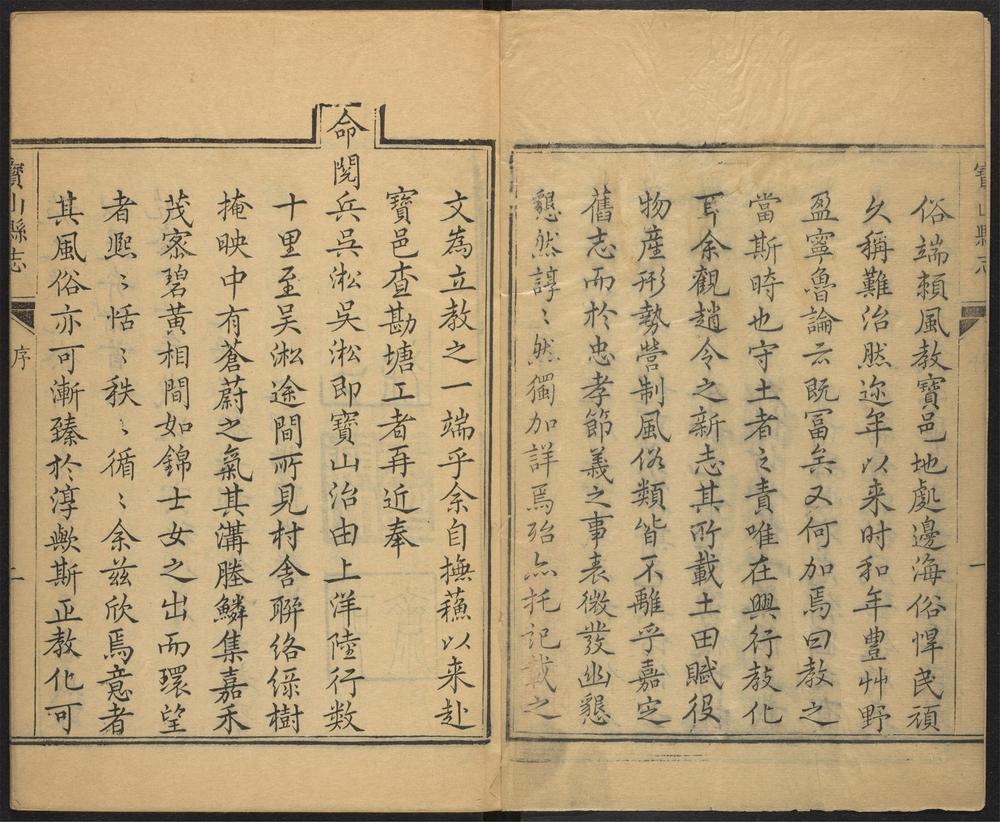 俗端賴風教寶邑地處邊海俗悍民頑
久稱難治然迩年以来时和年豊艸野
盈寧魯論云既冨矣又何加焉曰教之
當斯時也守土者之責唯在興行教化
耳余觀趙令之新志其所載土田賦役
物産形勢營制風俗類皆不離乎嘉定
舊志而於忠孝節義之事表微發幽懇
懇然諄〻然獨加詳焉殆亦托記載之
寶山縣志
一
文為立教之一端乎余自撫蘓以来赴
寶邑查勘塘工者再近奉
命閱兵吳淞吳淞即寶山治由上洋陸行数
十里至吴淞途間所見村舎聯絡緑樹
掩映中有蒼蔚之氣其溝塍鱗集嘉禾
茂宻碧黄相間如錦士女之出而環望
者熙〻恬〻秩〻循〻余兹欣焉意者
其風俗亦可漸臻於淳歟斯正教化可
寶山縣志
序
二